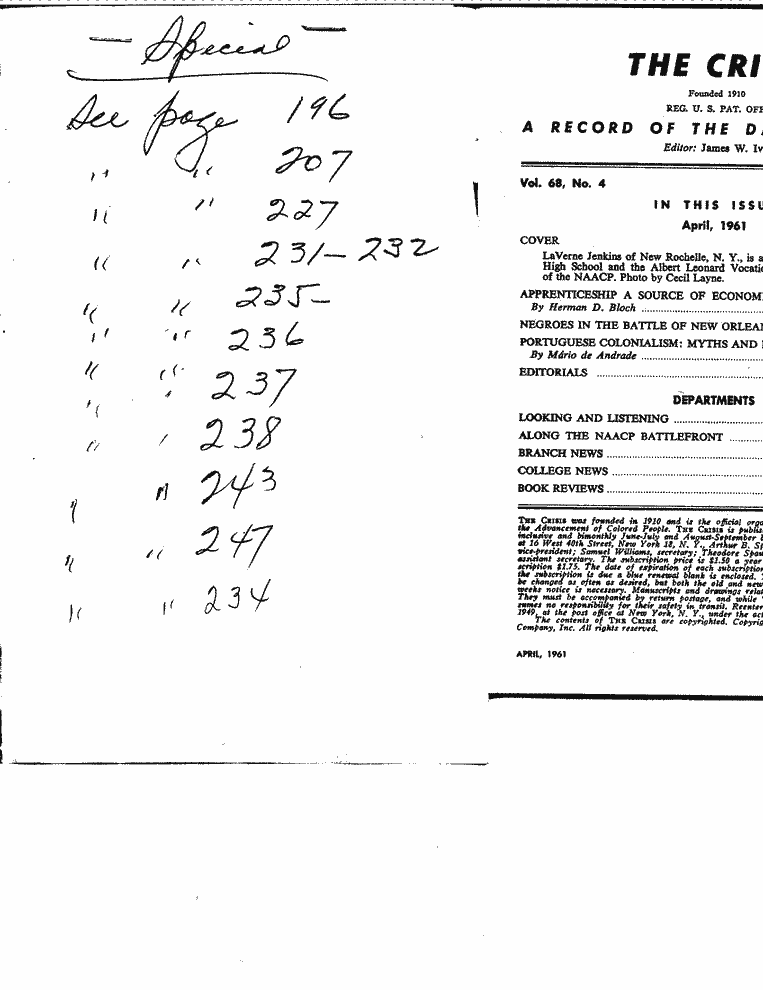 — Special —
See page 196
" " 207
" " 227
" " 231-232
" " 235-
" " 236
" " 237
" " 238
" " 243
" " 247
" " 234
THE CRI
Founded 1910
REG. U. S. PAT. OFF
A RECORD OF THE DA
Editor: James W. Iv
Vol. 68, No. 4
IN THIS ISSU
April, 1961
COVER
LaVerne Jenkins of New Rochelle, N. Y., is a
High School and the Albert Leonard Vocatio
of the NAACP. Photo by Cecil Layne.
APPRENTICESHIP A SOURCE OF ECONOM
By Herman D. Bloch
NEGROES IN THE BATTLE OF NEW ORLEAN
PORTUGUESE COLONIALISM: MYTHS AND
By Mário de Andrade
EDITORIALS
DEPARTMENTS
LOOKING AND LISTENING
ALONG THE NAACP BATTLEFRONT
BRANCH NEWS
COLLEGE NEWS
BOOK REVIEWS
THE CRISIS was founded in 1910 and is the official orga
the Advancement of Colored People. THE CRISIS is publis
inclusive and bimonthly June-July and August-September b
at 16 West 40th Street, New York 18, N. Y., Arthur B. Sp
vice-president; Samuel Williams, secretary; Theodore Spau
assistant secretary. The subscription price is $1.50 a year
scription $1.75. The date of expiration of each subscription
the subscription is due a blue renewal blank is enclosed.
be changed as often as desired, but both the old and new
weeks notice is necessary. Manuscripts and drawings relat
They must be accompanied by return postage, and while
sumes no responsibility for their safety in transit. Reenter
1949, at the post office at New York, N. Y., under the act
The contents of THE CRISIS are copyrighted. Copyrig
Company, Inc. All rights reserved.
APRIL, 1961